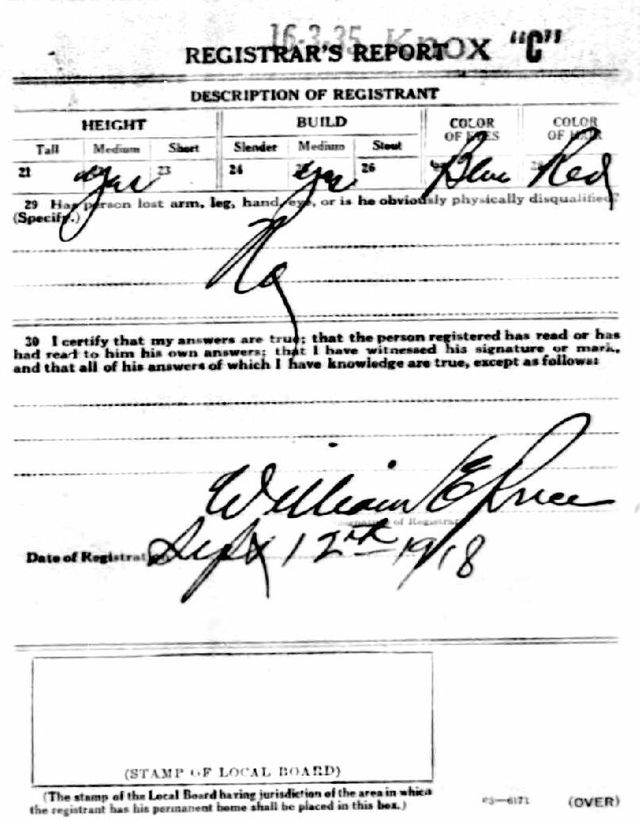 16-3-35 Knox "C"
REGISTRAR'S REPORT
DESCRIPTION OF REGISTRANT
HEIGHT BUILD COLOR OF EYES COLOR OF HAIR
Tall Medium Short Slender Medium Stout
21 yes 23 24 yes 26 Blue Red
29 Has person lost arm, leg, hand, eye, or is he obviously physically disqualified?
(Specify.)
No
30 I certify that my answers are true; that the person registered has read or has
had read to him his own answers; that I have witnessed his signature or mark,
and that all of his answers of which I have knowledge are true, except as follows:
William E Price
of Registrar
Date of Registration Sept 12th 1918
(STAMP OF LOCAL BOARD)
(The stamp of the Local Board having jurisdiction of the area in which
the registrant has his permanent home shall be placed in this box.)
03—6171 (OVER)